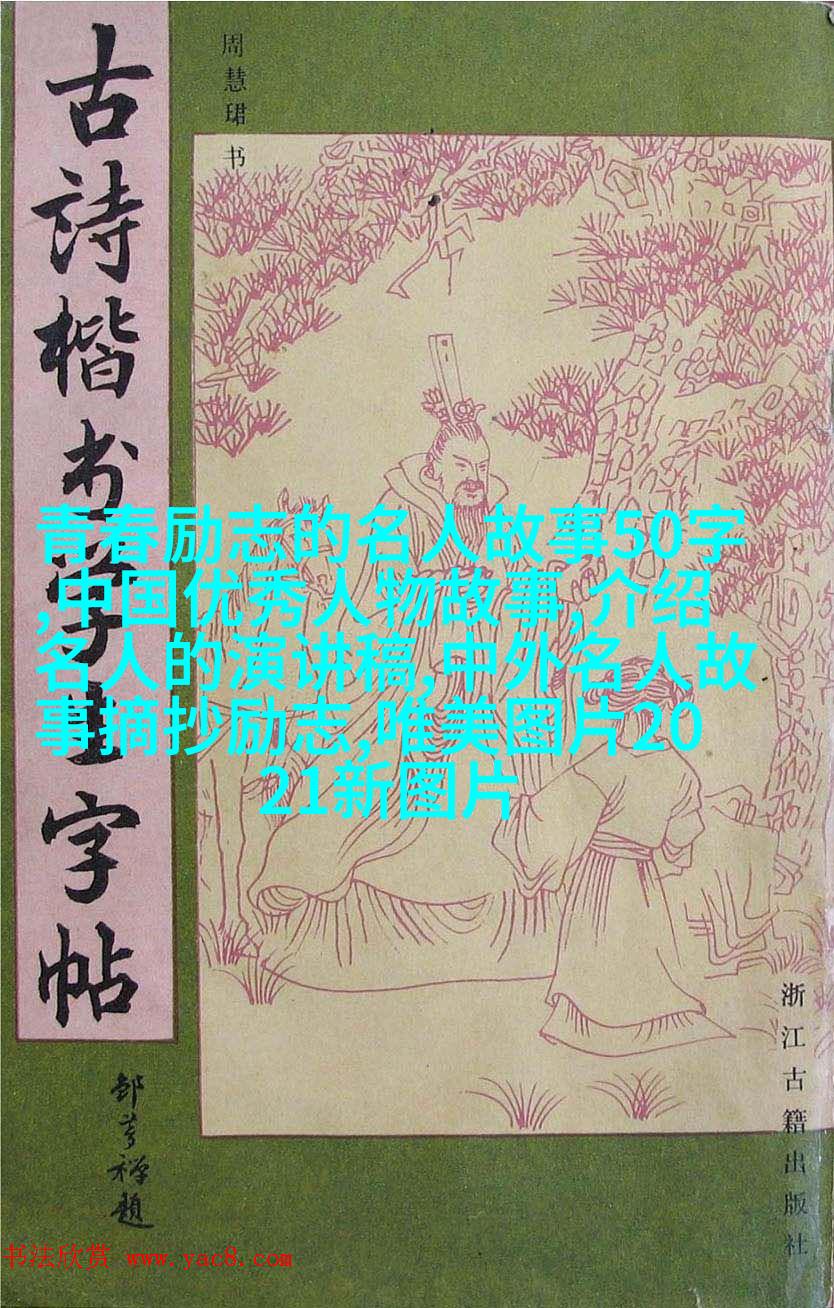 古詩楷书学生字帖
周慧珺书
青春励志的名人故事50字
,中国优秀人物故事,介绍
名人的演讲稿,中外名人故
事摘抄励志,唯美图片20
21新图片
邹梦禅題
浙江古籍出版社
书法欣赏 www.yac8.com